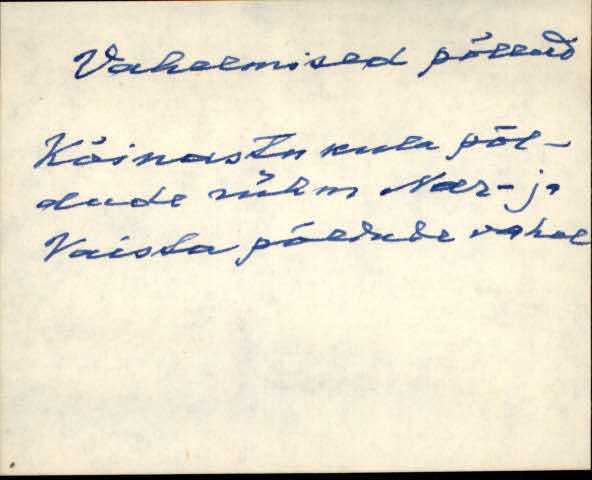 Vahelmised põllud
Käinastu küla põl-
dude rühm Nar- ja
Vaista põldude vahel